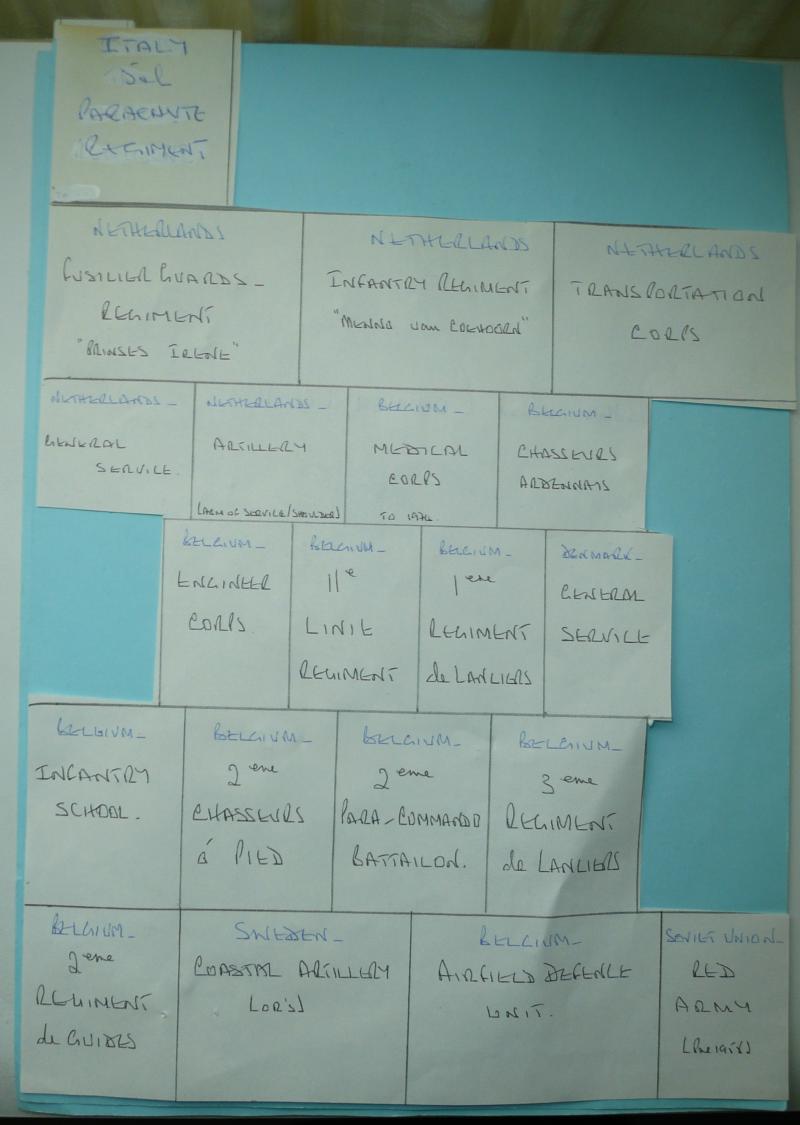 ITALY
PARACHUTE
REGIMENT
NETHERLANDS
FUSILIER GUARDS-
REGIMENT
"PRINSES IRENE"
NETHERLANDS
INFANTRY REGIMENT
"MENNO van COEHOORN"
NETHERLANDS
TRANSPORTATION
CORPS
NETHERLANDS-
GENERAL
SERVICE.
NETHERLANDS-
ARTILLERY
(ARM OF SERVICE/SHOULDER)
BELGIUM-
MEDICAL
CORPS
TO 1974.
BELGIUM-
CHASSEURS
ARDENNAIS
BELGIUM-
ENGINEER
CORPS.
BELGIUM-
11e
LINIE
REGIMENT
BELGIUM-
1ere
REGIMENT
de LANCIERS
DENMARK-
GENERAL
SERVICE
BELGIUM-
INFANTRY
SCHOOL.
BELGIUM-
2eme
CHASSEURS
á PIED
BELGIUM-
2eme
PARA-COMMANDO
BATTAILON.
BELGIUM-
3eme
REGIMENT
de LANCIERS
BELGIUM-
2eme
REGIMENT
de GUIDES
SWEDEN-
COASTAL ARTILLERY
(OR'S)
BELGIUM-
AIRFIELD DEFENCE
UNIT.
SOVIET UNION-
RED
ARMY